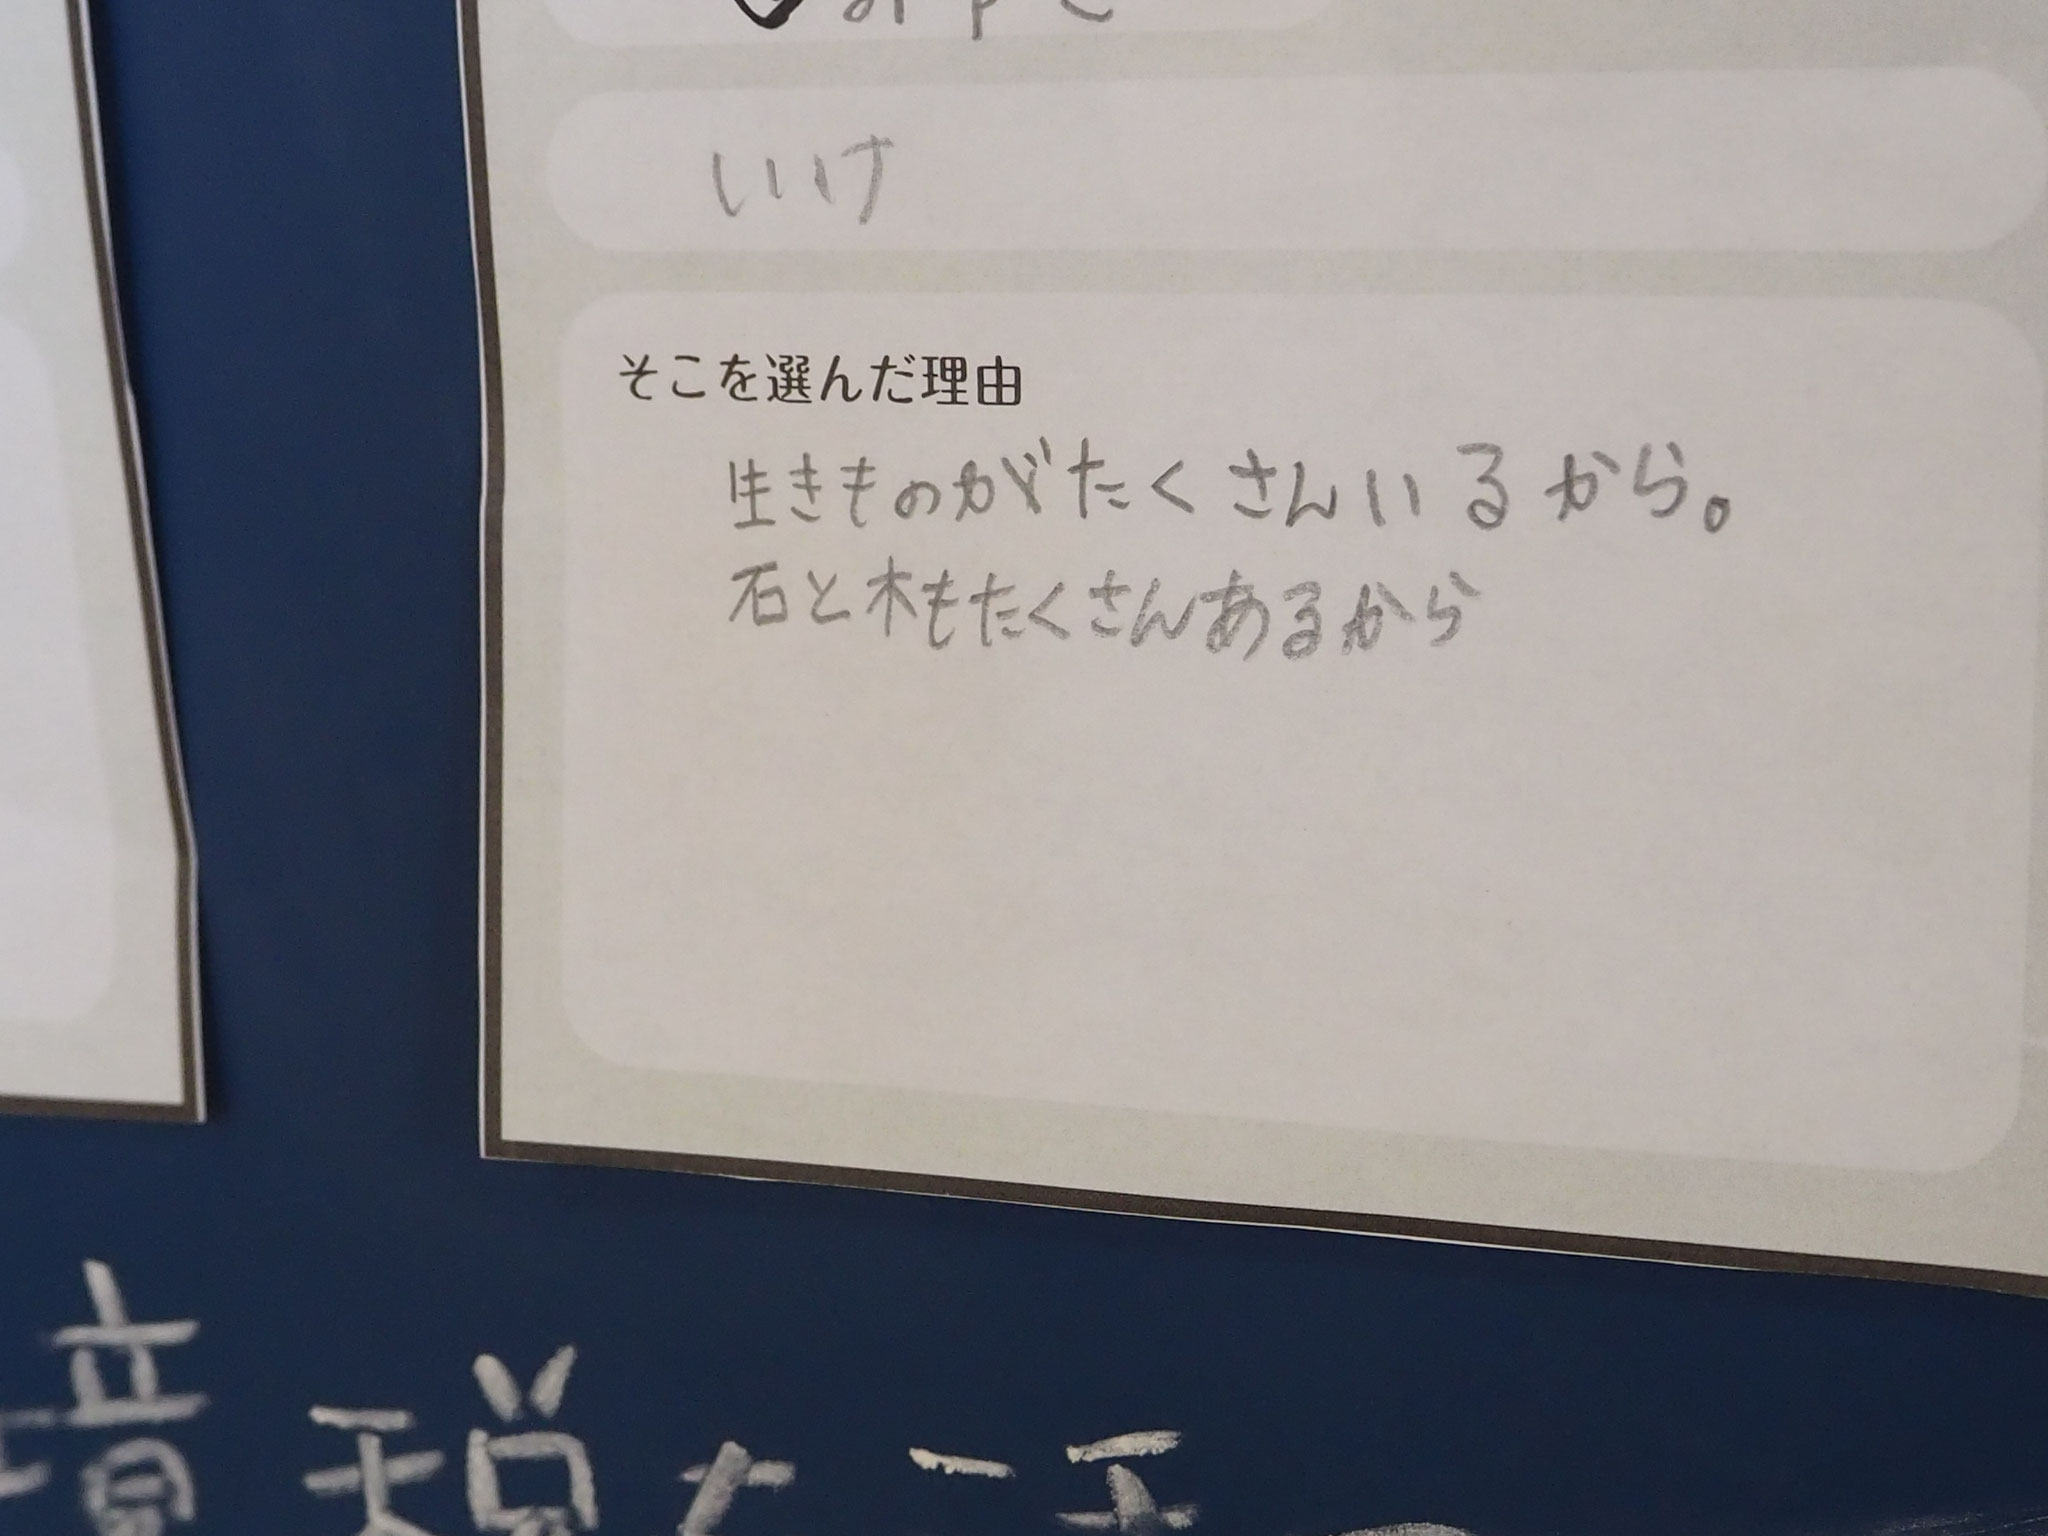 いいけ
そこを選んだ理由
生きものがたくさんいるから。
石と木もたくさんあるから
境税